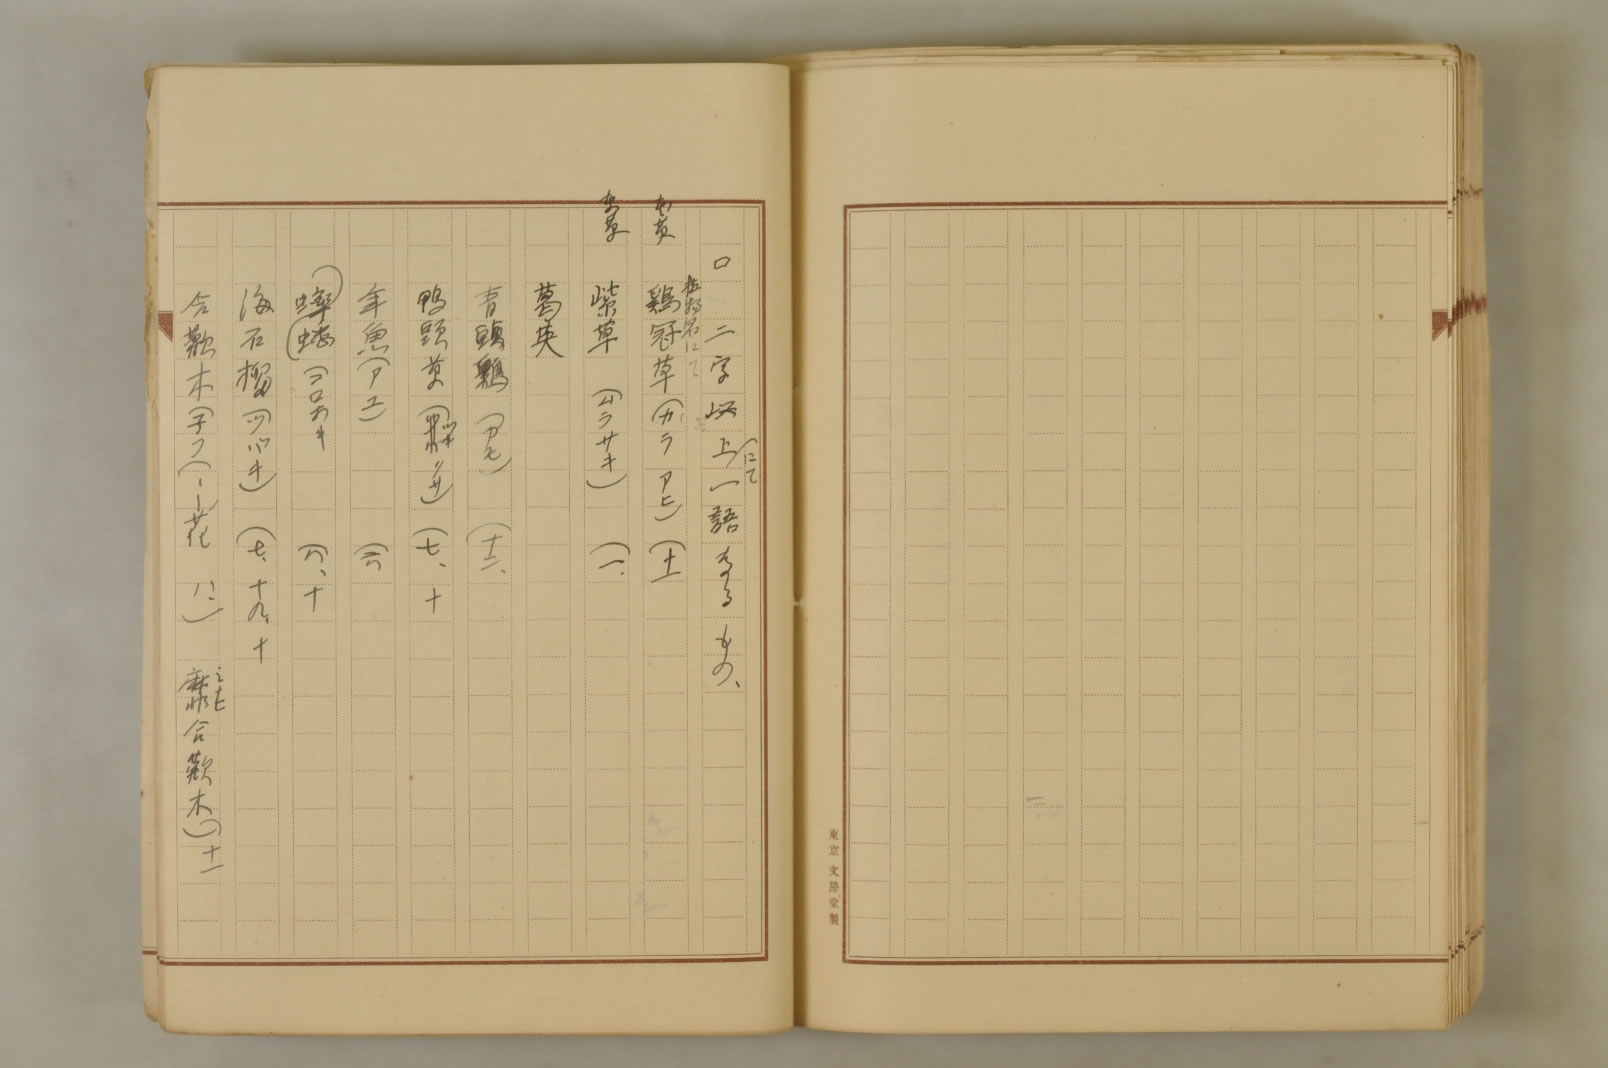 □ 二字以上にて一語なるもの、
植物名にて
鶏冠草(カラアヒ) (十一
紫草 (ムラサキ) (一、
葛英
青頭鶏 (アヒ) (十二、
鴨頭草 (ツキクサ) (七、十
年魚(アユ) (六
蟋蟀(コロオギ (八、十
海石榴(ツバキ) (七、十九、十
合歓木(子フ(ー花 八) 麻 合歓木) 十一
東京 文房堂製